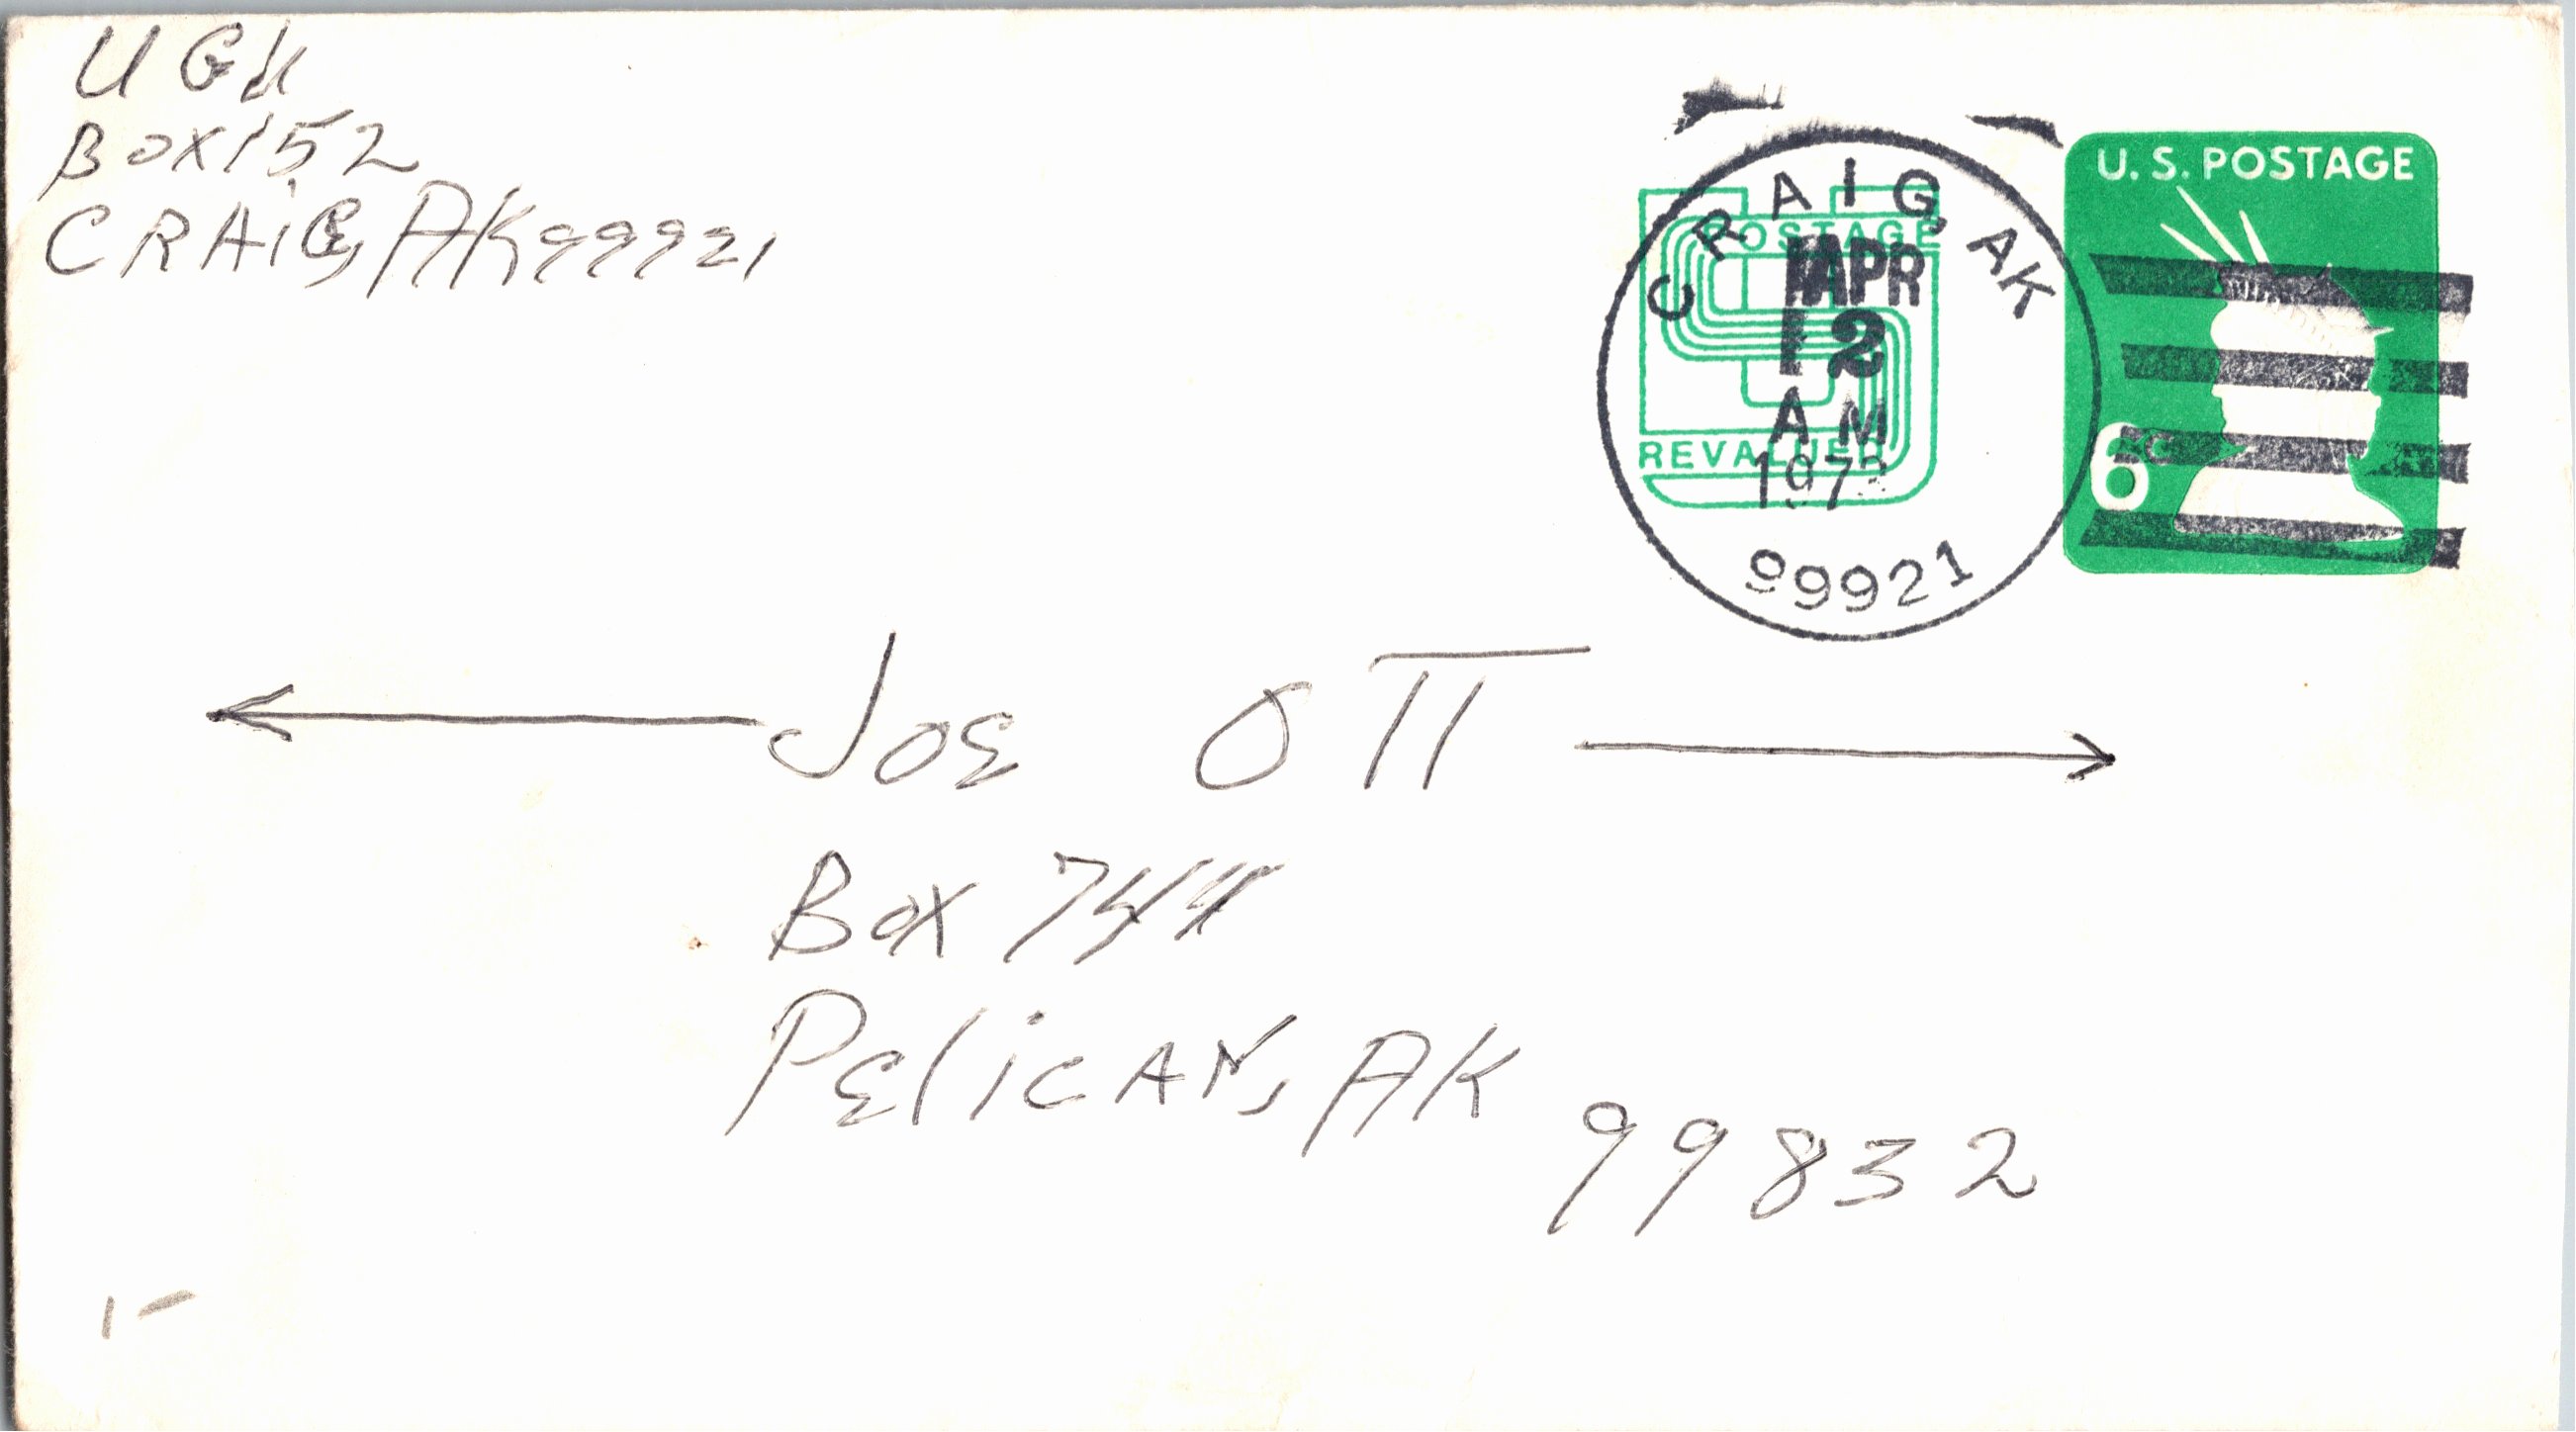 UGH
Box 152
CRAIG, AK 99921
U.S. POSTAGE
6¢
POSTAGE
REVALUED
CRAIG, AK
APR
12
AM
99921
JOE OTT
Box 744
PELICAN, AK
99832